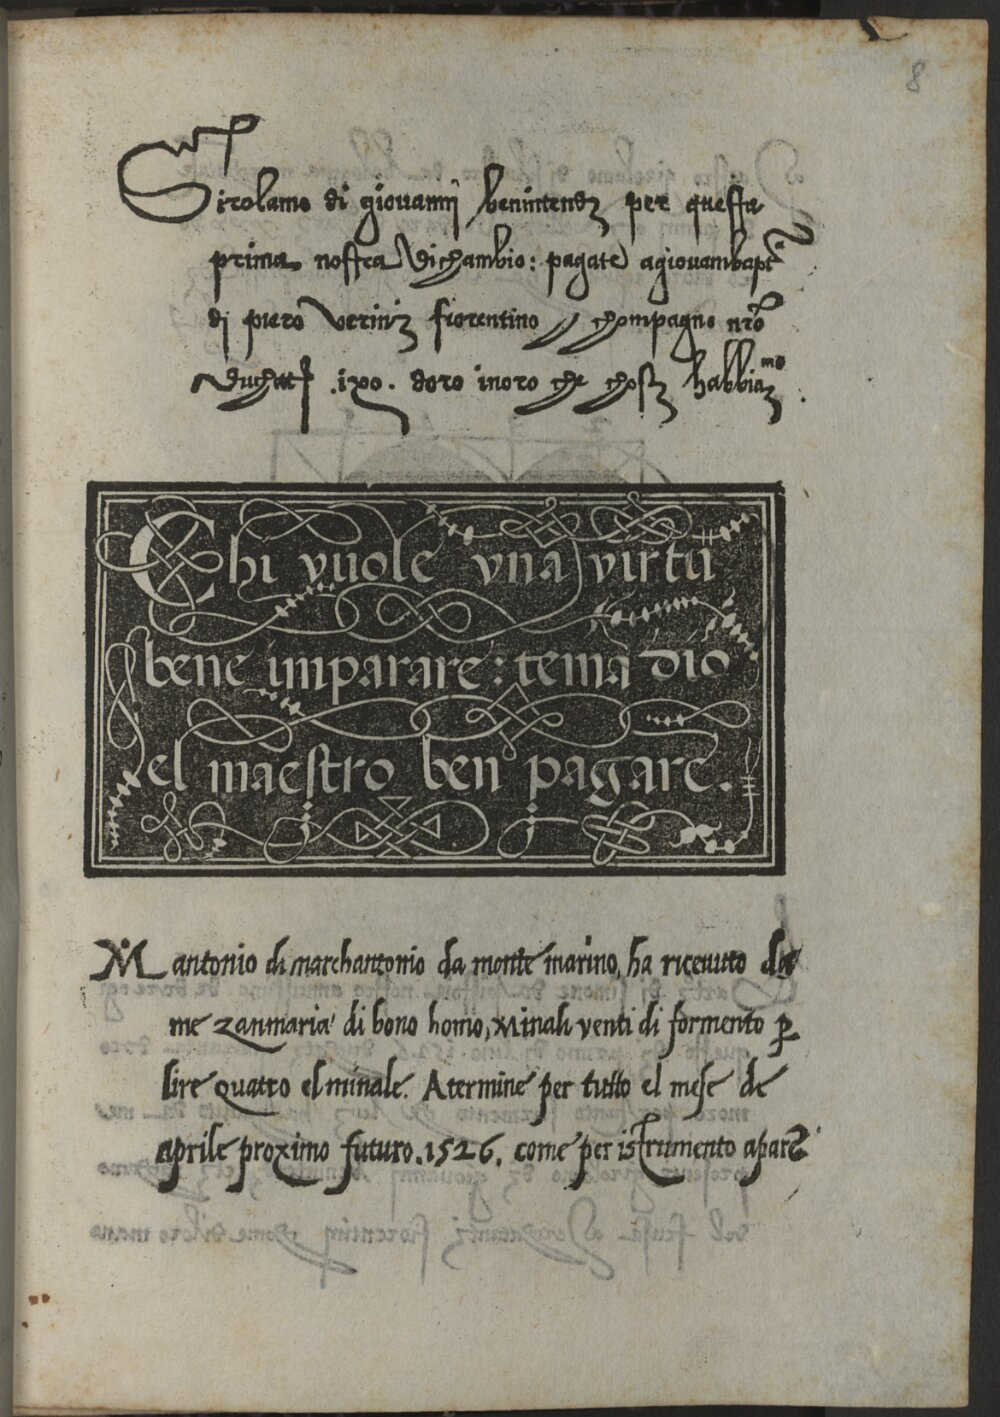 8
Girolamo di giouannj benintendi per questa
prima nostra dichambio: pagate agiouambapta
di piero Verini fiorentino chompagno nro
duchatj .ixo. doro inoro che chosti habbiamo.
Chi vuole vna virtu
bene imparare: tema dio
el maestro ben pagare.
M antonio di marchantonio da monte marino, ha riceuuto da
me zanmaria di bono homo, Minali venti di formento p
lire quatro el minale. A termine per tutto el mese de
aprile proximo futuro. 1526. come per istrumento apare